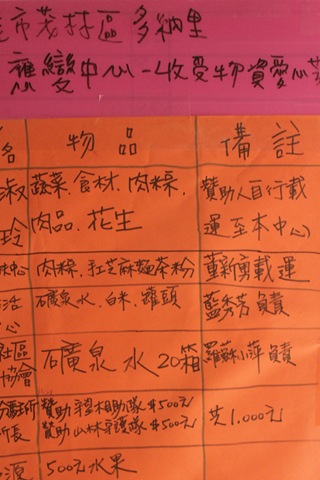 市茂林區多納里
應變中心-收受物資愛心
名 物品 備註
淑 蔬菜.食材.肉粽. 贊助人自行載
玲 肉品.花生 運至本中心)
中心 肉粽.紅芝麻麵茶粉 董新剪載運
活 礦泉水.白米.罐頭 藍秀芳負責
心
社區 礦泉水20箱 羅蘇小萍負責
協會
所 贊助守望相助隊$500元 共1.000元
所長 贊助山林守護隊$500元
源 500元水果